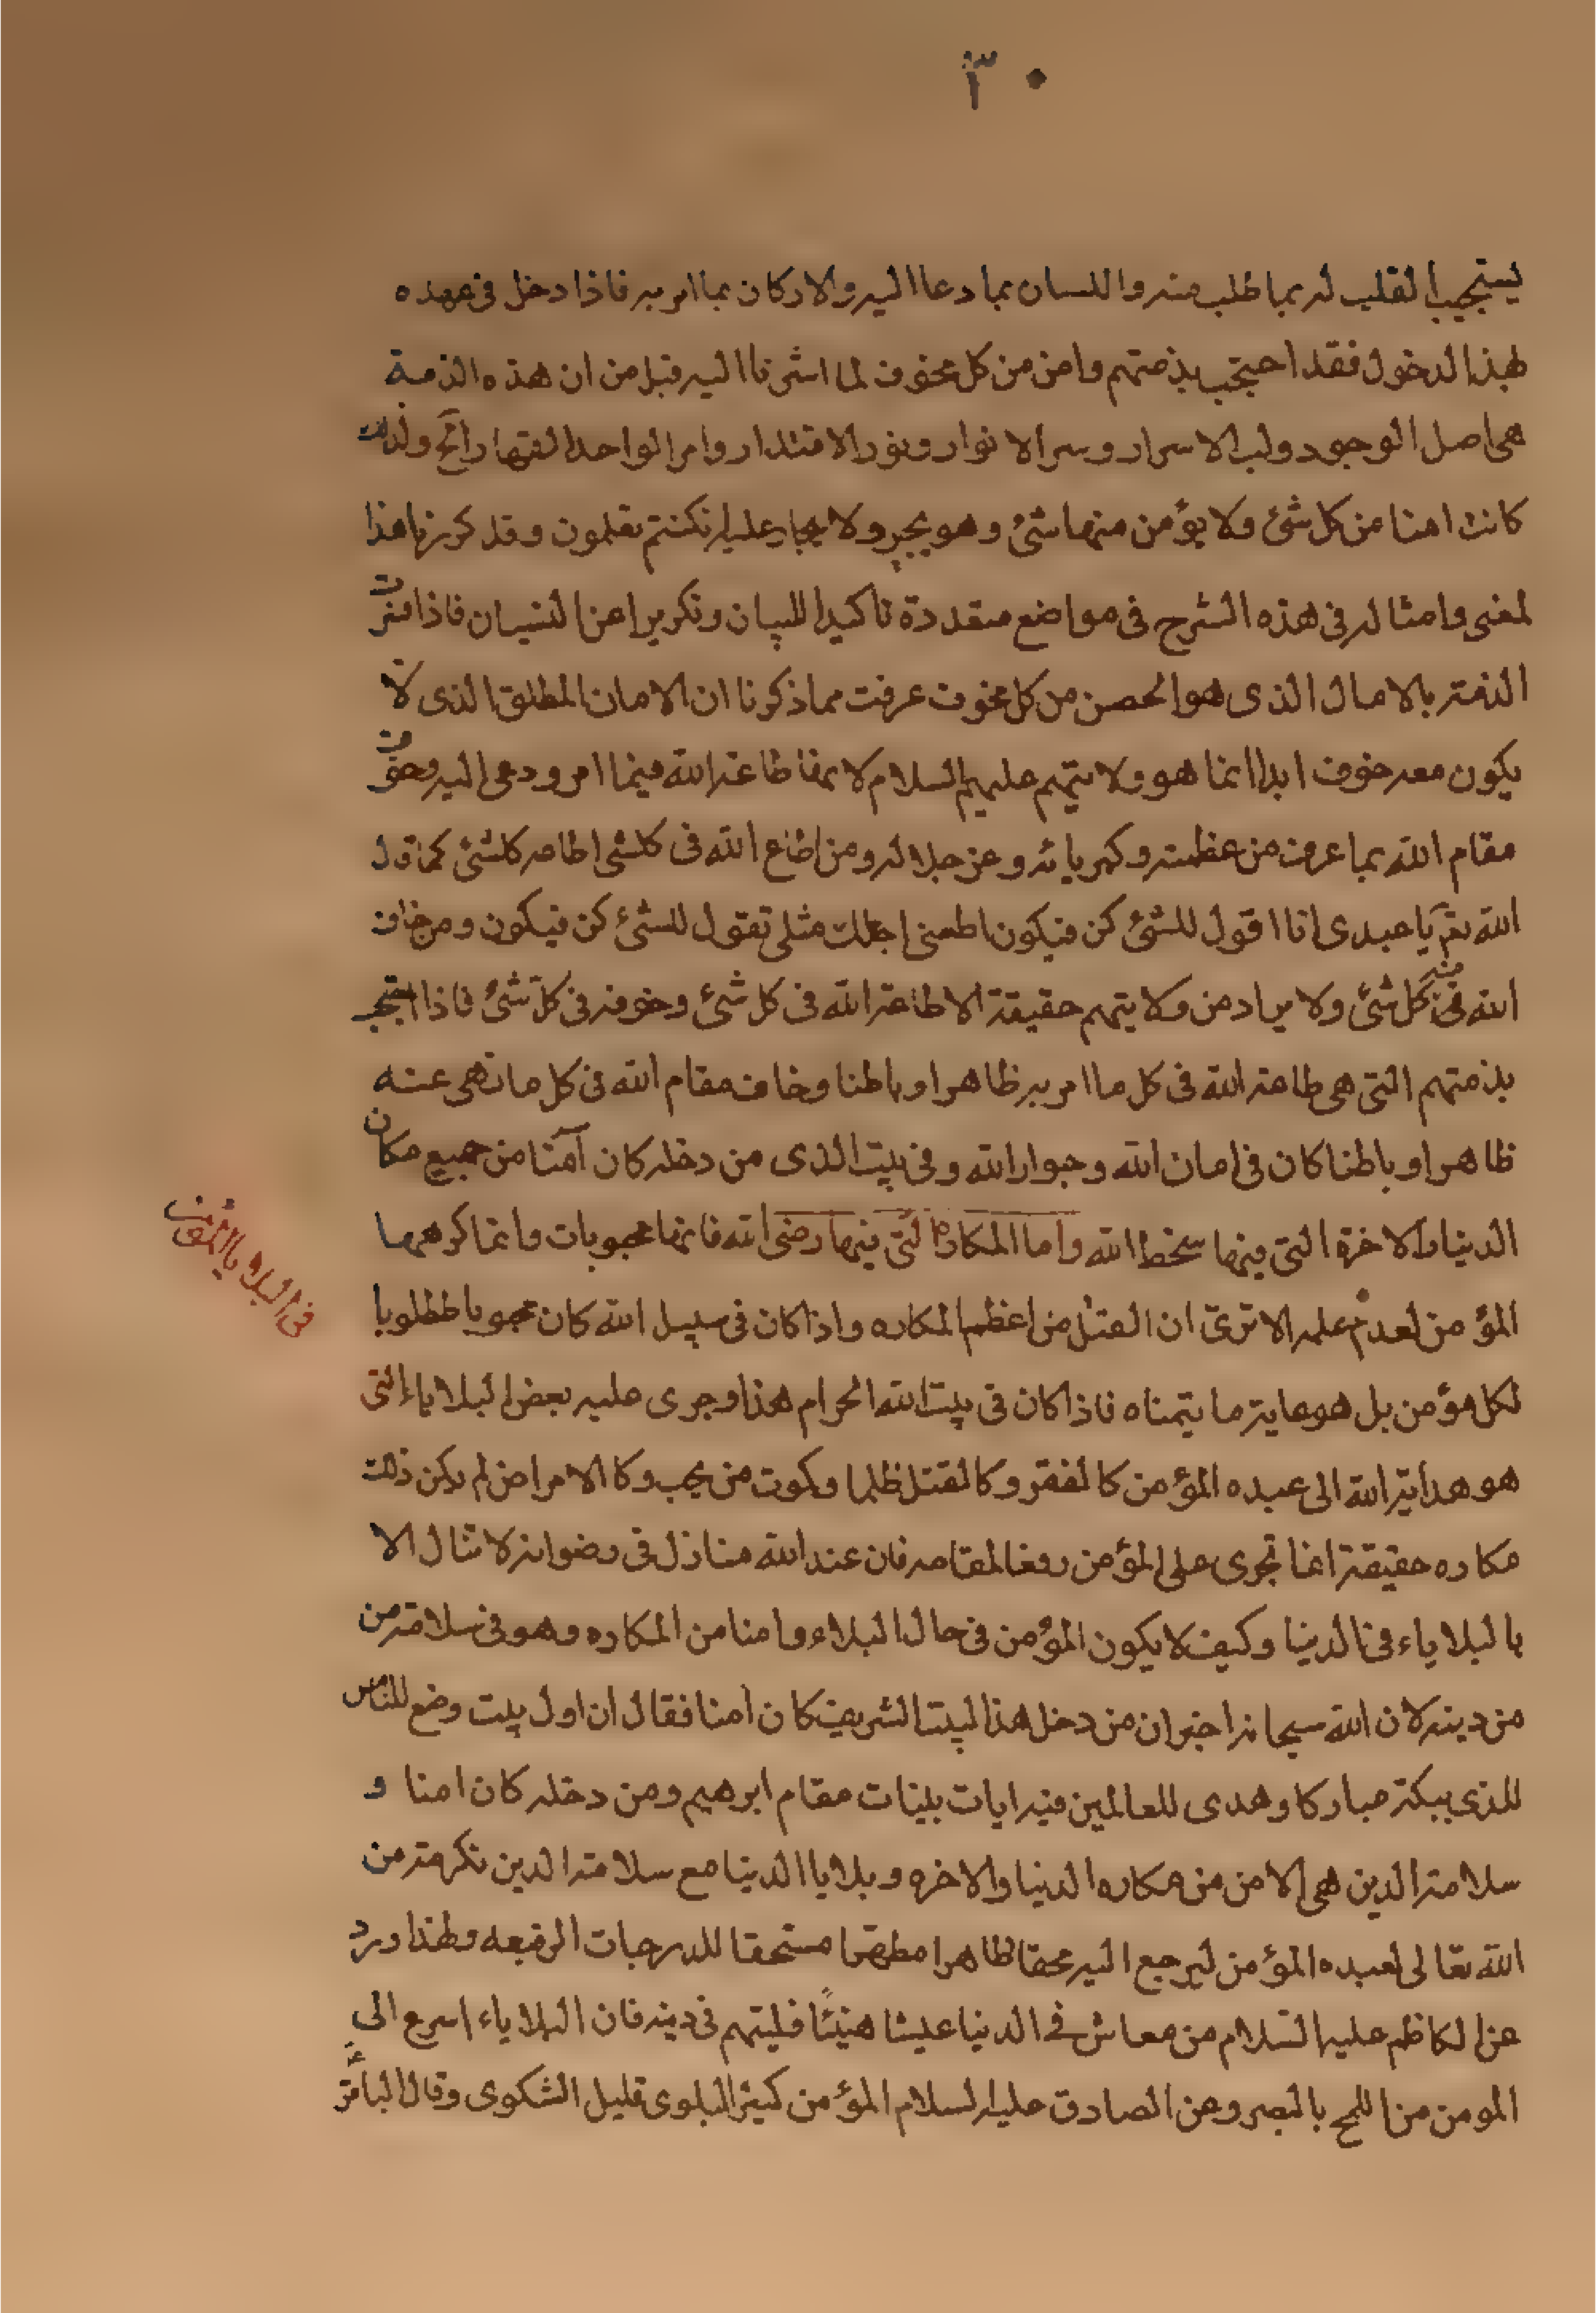 ٣٠
ليستجيب القلب له بما طلب منه واللسان بما دعا اليه والاركان بما امر به فاذا دخل فى عهده
لهذا الدخول فقد احتجب بذمتهم وامن من كل مخوف لما اشرنا اليه قبل من ان هذه الذمة
هى اصل الوجود ولب الاسرار وسر الانوار ونور الاقتدار وامر الواحد القهار ولذلك
كانت امنا من كل شئ ولا يؤمن منها شئ وهو يجير ولا يجار عليه ان كنتم تعلمون وقد كررنا هذا
لمعنى وامثاله فى هذه الشرح فى مواضع متعددة تاكيدا للبيان وتكريرا عن النسيان فاذا فسرت
الذمة بالامان الذى هو الحصن من كل مخوف عرفت مما ذكرنا ان الامان المطلق الذى لا
يكون معه خوف ابدا انما هو ولايتهم عليهم السلام لانها طاعة الله فيما امر ودعى اليه وخوف
مقام الله بما عرف من عظمته وكبريائه وعز جلاله ومن اطاع الله فى كلشى اطاعه كلشئ كما قال
الله تعم يا عبدى انا اقول للشئ كن فيكون اطعنى اجعلك مثلى تقول للشئ كن فيكون ومن خاف
الله فى كل شئ منه كل شئ ولا يراد من ولايتهم حقيقة الا طاعة الله فى كل شئ وخوفه فى كل شئ فاذا احتجب
بذمتهم التى هى طاعة الله فى كل ما امر به ظاهرا وباطنا وخاف مقام الله فى كل ما نهى عنه
ظاهرا وباطنا كان فى امان الله وجوار الله وفى بيت الذى من دخله كان آمنا من جميع مكان
الدنيا والاخرة التى فيها سخط الله واما المكاره التى فيها رضى الله فانها محبوبات وانما كرهها
المؤمن لعدم علمه الا ترى ان القتل من اعظم المكاره واذا كان فى سبيل الله كان محبوبا مطلوبا
لكل مؤمن بل هو غاية ما يتمناه فاذا كان فى بيت الله الحرام هذا وجرى عليه بعض البلاياء التى
هو هداية الله الى عبده المؤمن كالفقر وكالقتل ظلما وكموت من يحب وكالامراض لم يكن ذلك
مكاره حقيقة انما تجرى على المؤمن رفعا لمقامه فان عند الله منازل فى رضوانه لا تنال الا
بالبلاياء فى الدنيا وكيف لا يكون المؤمن فى حال البلاء وامنا من المكاره وهو فى سلامة من
من دينه لان الله سبحانه اخبر ان من دخل هذا البيت الشريف كان امنا فقال ان اول بيت وضع للناس
للذى ببكة مباركا وهدى للعالمين فيه ايات بينات مقام ابرهيم ومن دخله كان امنا و
سلامة الدين هى الامن من مكاره الدنيا والاخره وبلايا الدنيا مع سلامة الدين تكرمة من
الله تعالى لعبده المؤمن ليرجع اليه محقا طاهرا مطهرا مستحقا للدرجات الرفيعه ولهذا ورد
عن الكاظم عليه السلام من معاش فى الدنيا عيشا هنيئًا فليتهم فى دينه فان البلاياء اسرع الى
المومن من اللمح بالبصر وعن الصادق عليه السلام المؤمن كثير البلوى قليل الشكوى وقال الباقر ع
فى البلايا للمؤمن